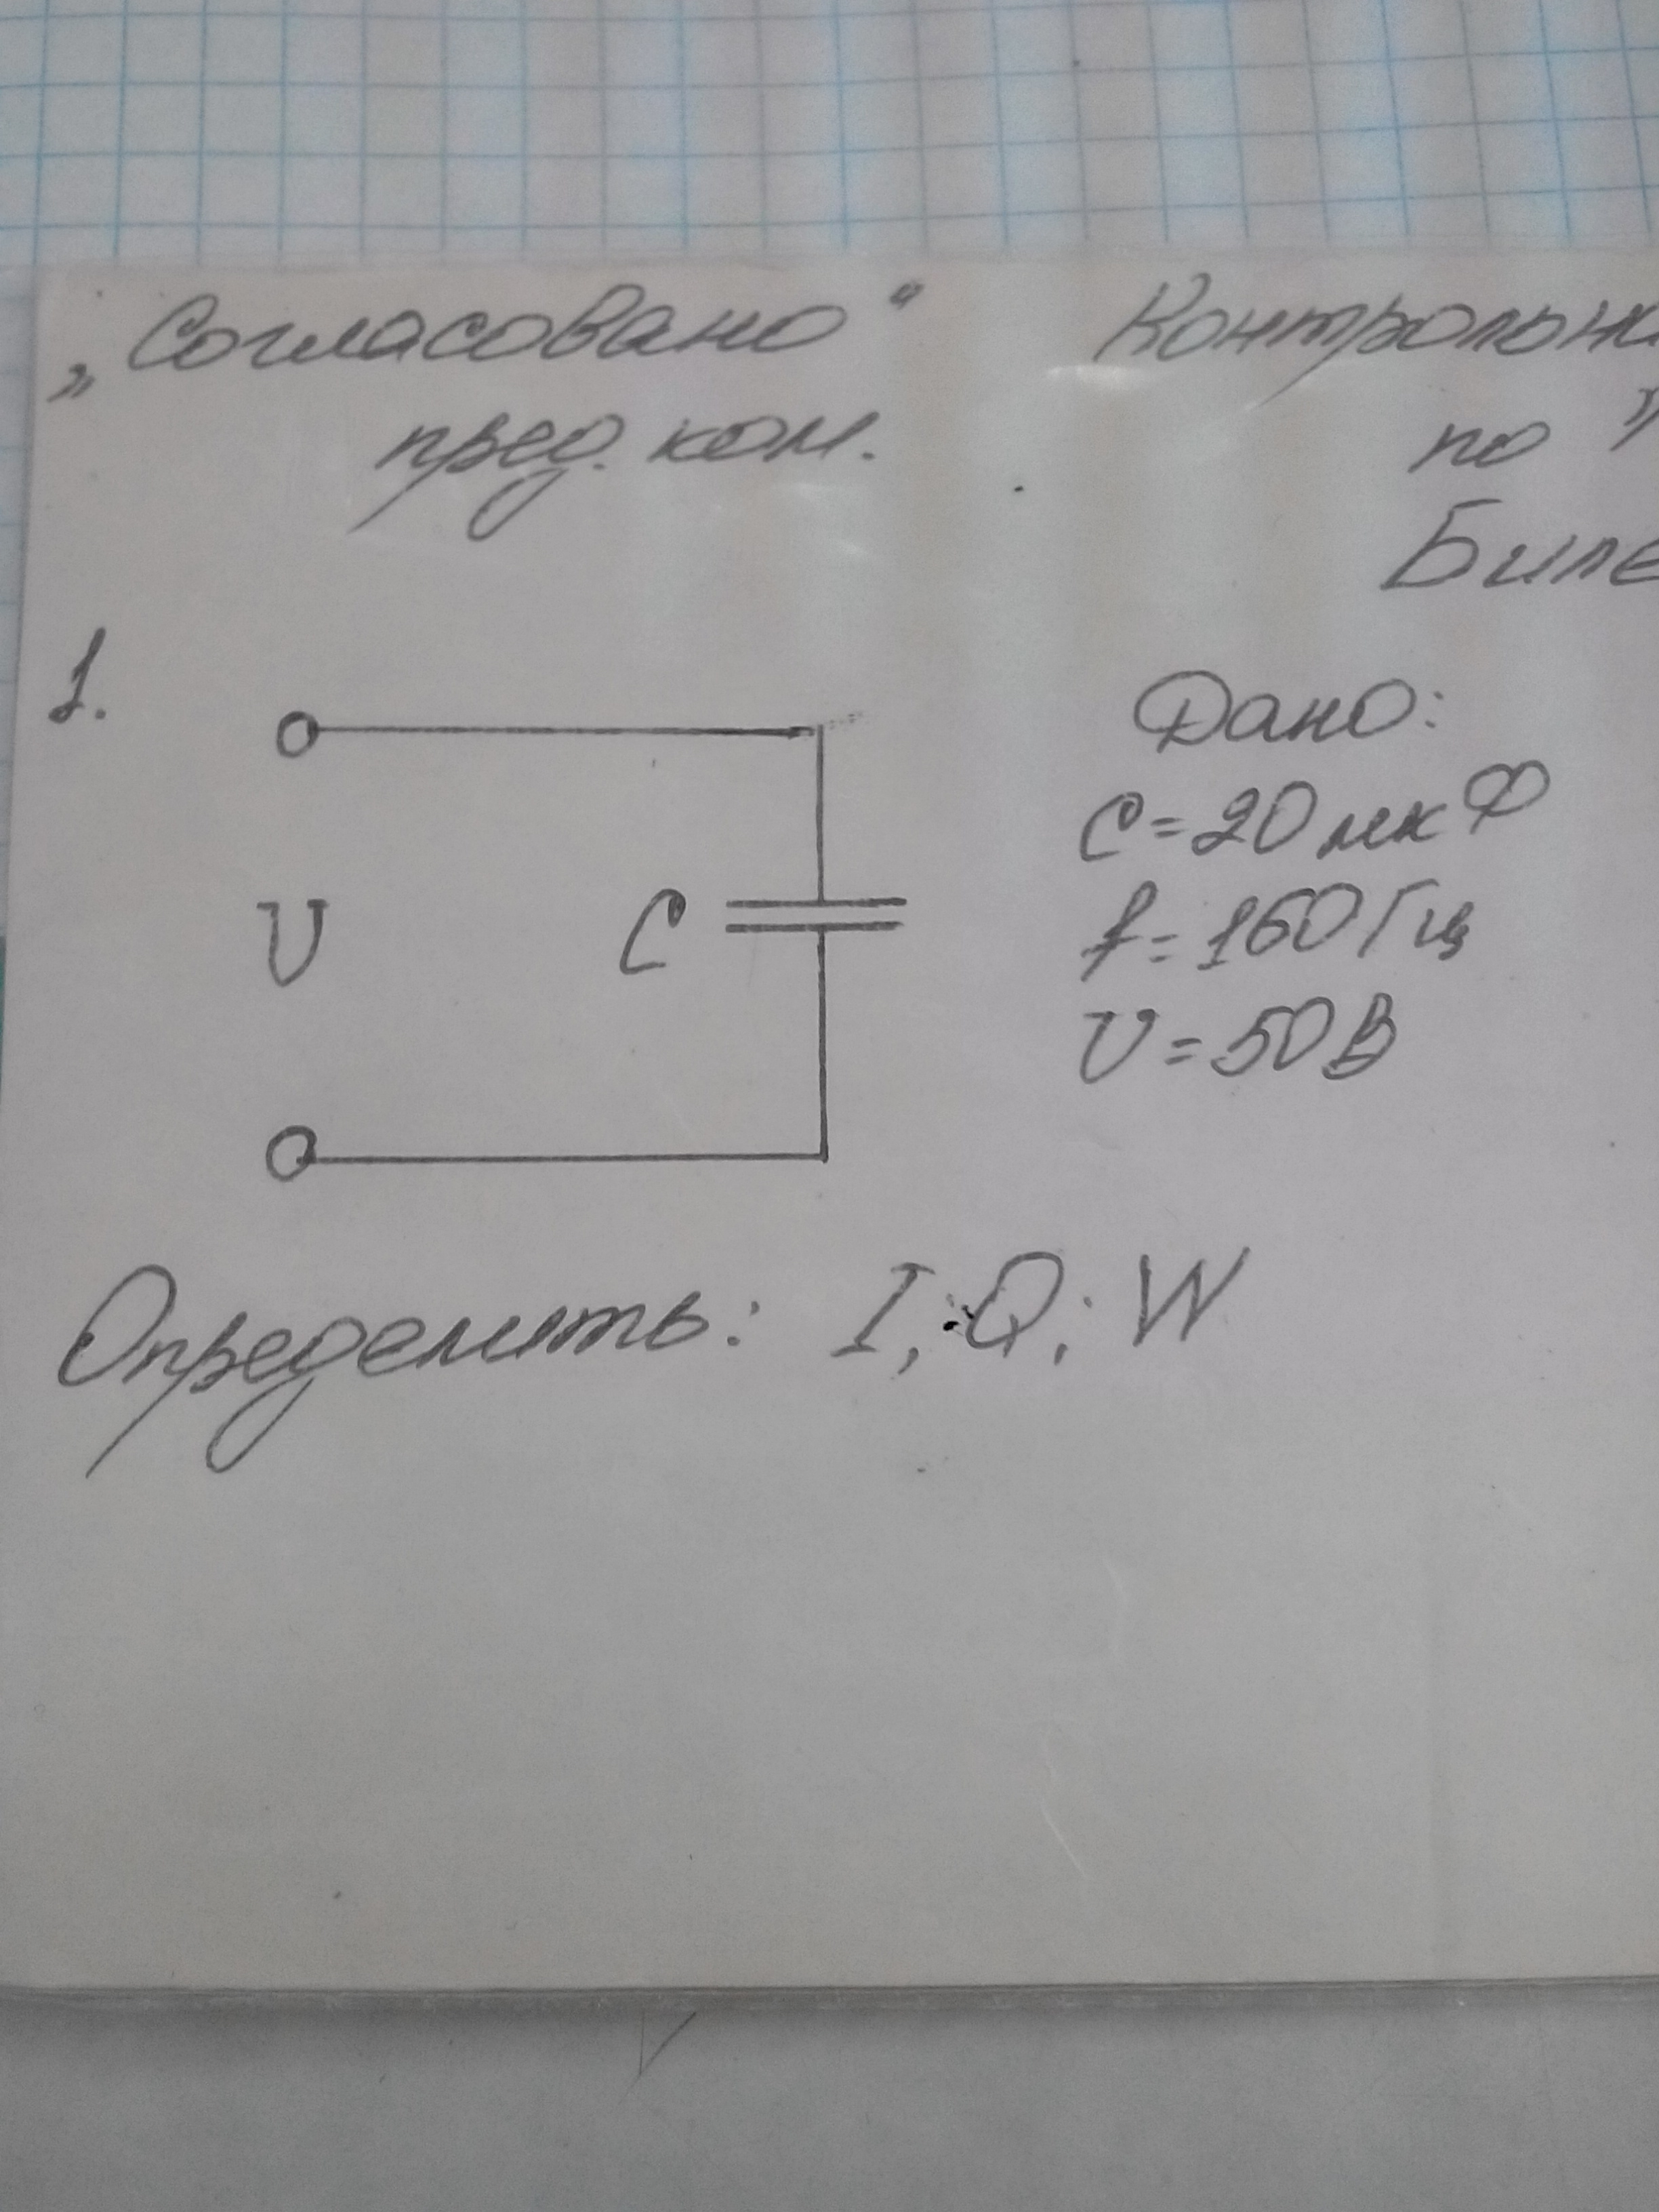 „Согласовано“
пред. ком.
Контрольна
по "
Биле
1.
U
C
Дано:
C=20мкФ
f=160Гц
U=50В
Определить: I; Q; W